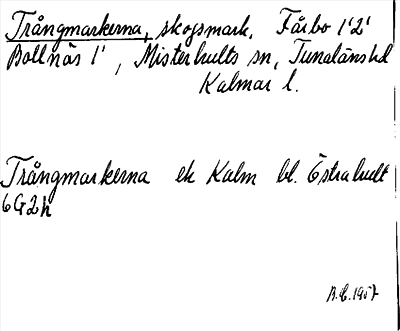 Trångmarkerna, skogsmark, Fårbo 1'2'
Bollnäs 1', Misterhults sn, Tunaläns hd
Kalmar l.
Trångmarkerna ek Kalm bl. Östrahult
6G2h
1957